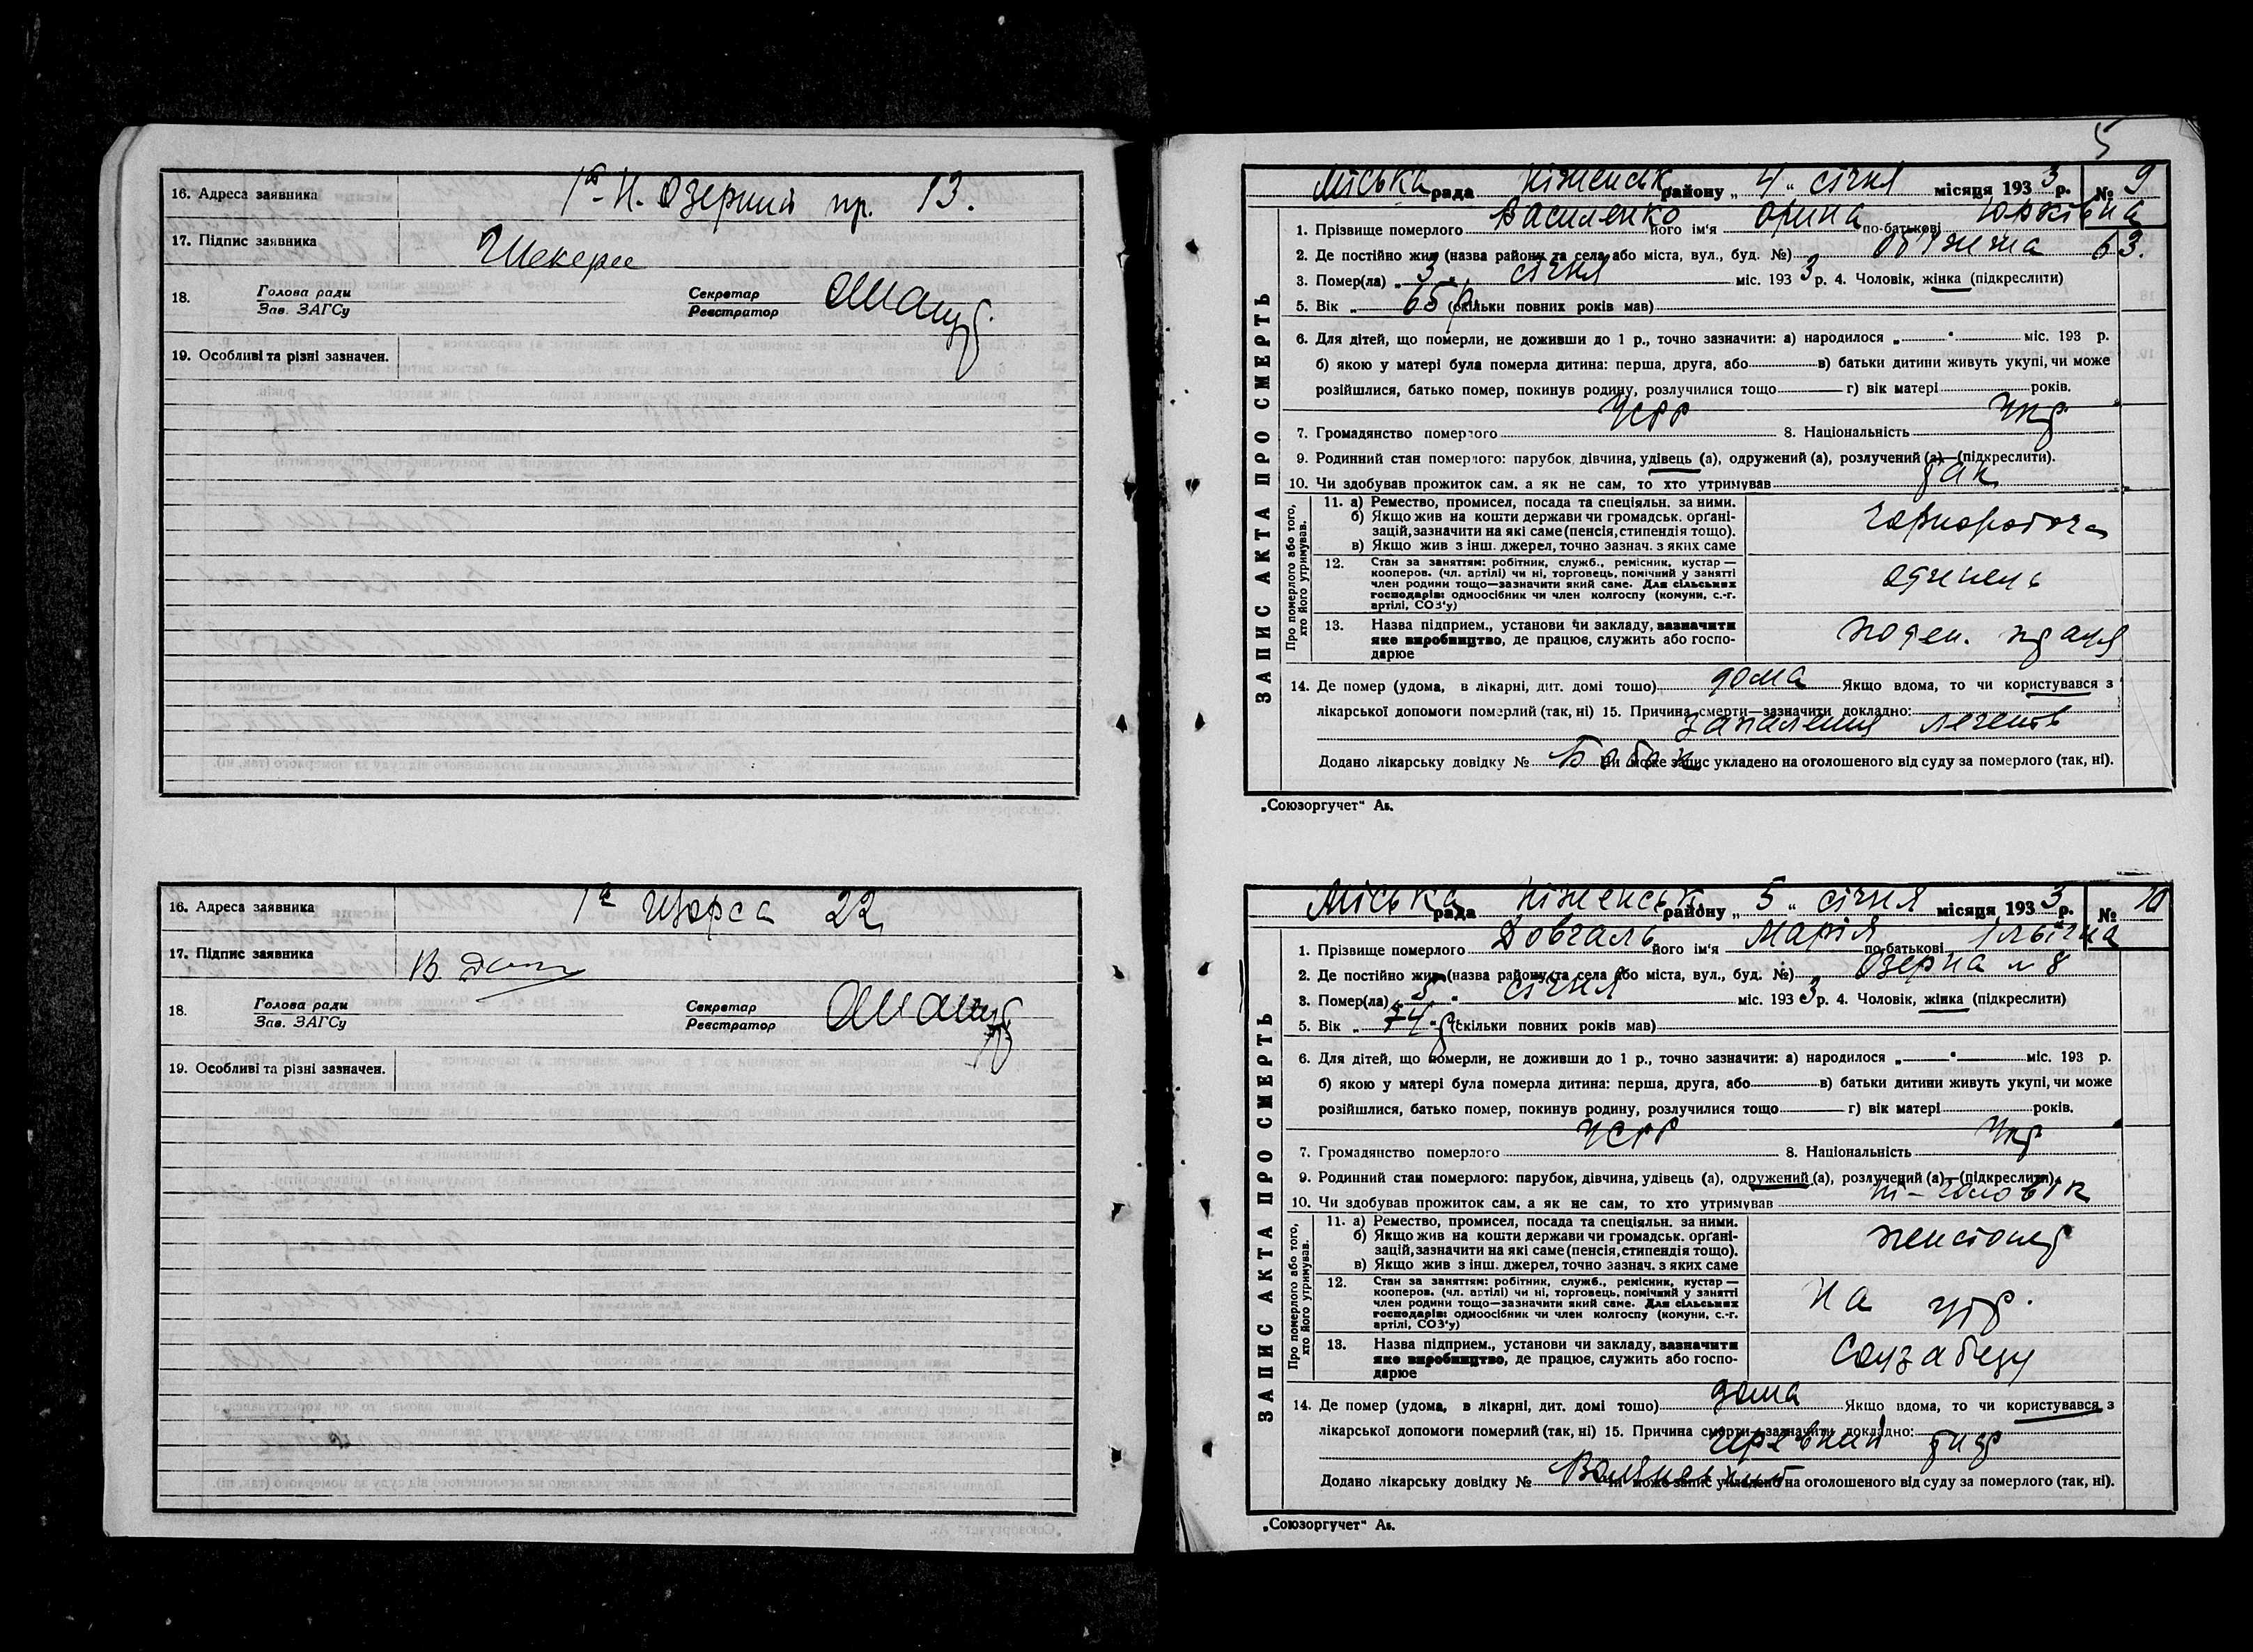 16. Адреса заявника 1а Н. Озерний пр. 13.
17. Підпис заявника
18. Голова ради Секретар
Зав. ЗАГСу Реєстратор
19. Особливі та різні зазначен.
16. Адреса заявника 1а Щорса 22
17. Підпис заявника
18. Голова ради Секретар
Зав. ЗАГСу Реєстратор
19. Особливі та різні зазначен.
5
ЗАПИС АКТА ПРО СМЕРТЬ
Міська рада Ніженськ району „ 4 “ січня місяця 1933 р. № 9
1. Прізвище померлого Василенко його ім'я Орина по-батькові Юрківна
2. Де постійно жив (назва району та села або міста, вул., буд. №) Об'їжжа 63.
3. Помер(ла) „ 3 “ січня міс. 1933 р. 4. Чоловік, жінка (підкреслити)
5. Вік „ 65 р. (скільки повних років мав)
6. Для дітей, що померли, не доживши до 1 р., точно зазначити: а) народилося „ “ міс. 193 р.
б) якою у матері була померла дитина: перша, друга, або в) батьки дитини живуть укупі, чи може
розійшлися, батько помер, покинув родину, розлучилися тощо г) вік матері років.
7. Громадянство померлого УСРР 8. Національність Укр
9. Родинний стан померлого: парубок, дівчина, удівець (а), одружений (а), розлучений (а)—(підкреслити).
10. Чи здобував прожиток сам, а як не сам, то хто утримував так
Про померлого або того, хто його утримував.
11. а) Ремество, промисел, посада та спеціяльн. за ними.
б) Якщо жив на кошти держави чи громадськ. орґані-
зацій, зазначити на які саме (пенсія, стипендія тощо).
в) Якщо жив з інш. джерел, точно зазнач. з яких саме
чорнороботча
12. Стан за заняттям: робітник, служб., ремісник, кустар—
кооперов. (чл. артілі) чи ні, торговець, помічний у занятті
член родини тощо—зазначити який саме. Для сільських
господарів: одноосібник чи член колгоспу (комуни, с.-г.
артілі, СОЗ'у)
13. Назва підприєм., установи чи закладу, зазначити
яке виробництво, де працює, служить або госпо-
дарює
поден. праця
14. Де помер (удома, в лікарні, дит. домі тошо) дома Якщо вдома, то чи користувався з
лікарської допомоги померлий (так, ні) 15. Причина смерти—зазначити докладно:
запалення легенів
Додано лікарську довідку № Чи може запис укладено на оголошеного від суду за померлого (так, ні).
„Союзоргучет“ Аб.
ЗАПИС АКТА ПРО СМЕРТЬ
Міська рада Ніженськ. району „ 5 “ січня місяця 1933 р. № 10
1. Прізвище померлого Довгаль його ім'я Марія по-батькові Ільвічна
2. Де постійно жив (назва району та села або міста, вул., буд. №) Озерна № 8
3. Помер(ла) „ 5 “ січня міс. 1933 р. 4. Чоловік, жінка (підкреслити)
5. Вік „ 74 р. (скільки повних років мав)
6. Для дітей, що померли, не доживши до 1 р., точно зазначити: а) народилося „ “ міс. 193 р.
б) якою у матері була померла дитина: перша, друга, або в) батьки дитини живуть укупі, чи може
розійшлися, батько помер, покинув родину, розлучилися тощо г) вік матері років.
7. Громадянство померлого УСРР 8. Національність Укр
9. Родинний стан померлого: парубок, дівчина, удівець (а), одружений (а), розлучений (а)—(підкреслити).
10. Чи здобував прожиток сам, а як не сам, то хто утримував ні – чоловік
Про померлого або того, хто його утримував.
11. а) Ремество, промисел, посада та спеціяльн. за ними.
б) Якщо жив на кошти держави чи громадськ. орґані-
зацій, зазначити на які саме (пенсія, стипендія тощо).
в) Якщо жив з інш. джерел, точно зазнач. з яких саме
пенсіонер
12. Стан за заняттям: робітник, служб., ремісник, кустар—
кооперов. (чл. артілі) чи ні, торговець, помічний у занятті
член родини тощо—зазначити який саме. Для сільських
господарів: одноосібник чи член колгоспу (комуни, с.-г.
артілі, СОЗ'у)
на утр.
13. Назва підприєм., установи чи закладу, зазначити
яке виробництво, де працює, служить або госпо-
дарює
Соцзабезу
14. Де помер (удома, в лікарні, дит. домі тошо) дома Якщо вдома, то чи користувався з
лікарської допомоги померлий (так, ні) 15. Причина смерти—зазначити докладно:
черевний тиф
Додано лікарську довідку № Чи може запис укладено на оголошеного від суду за померлого (так, ні).
„Союзоргучет“ Аб.